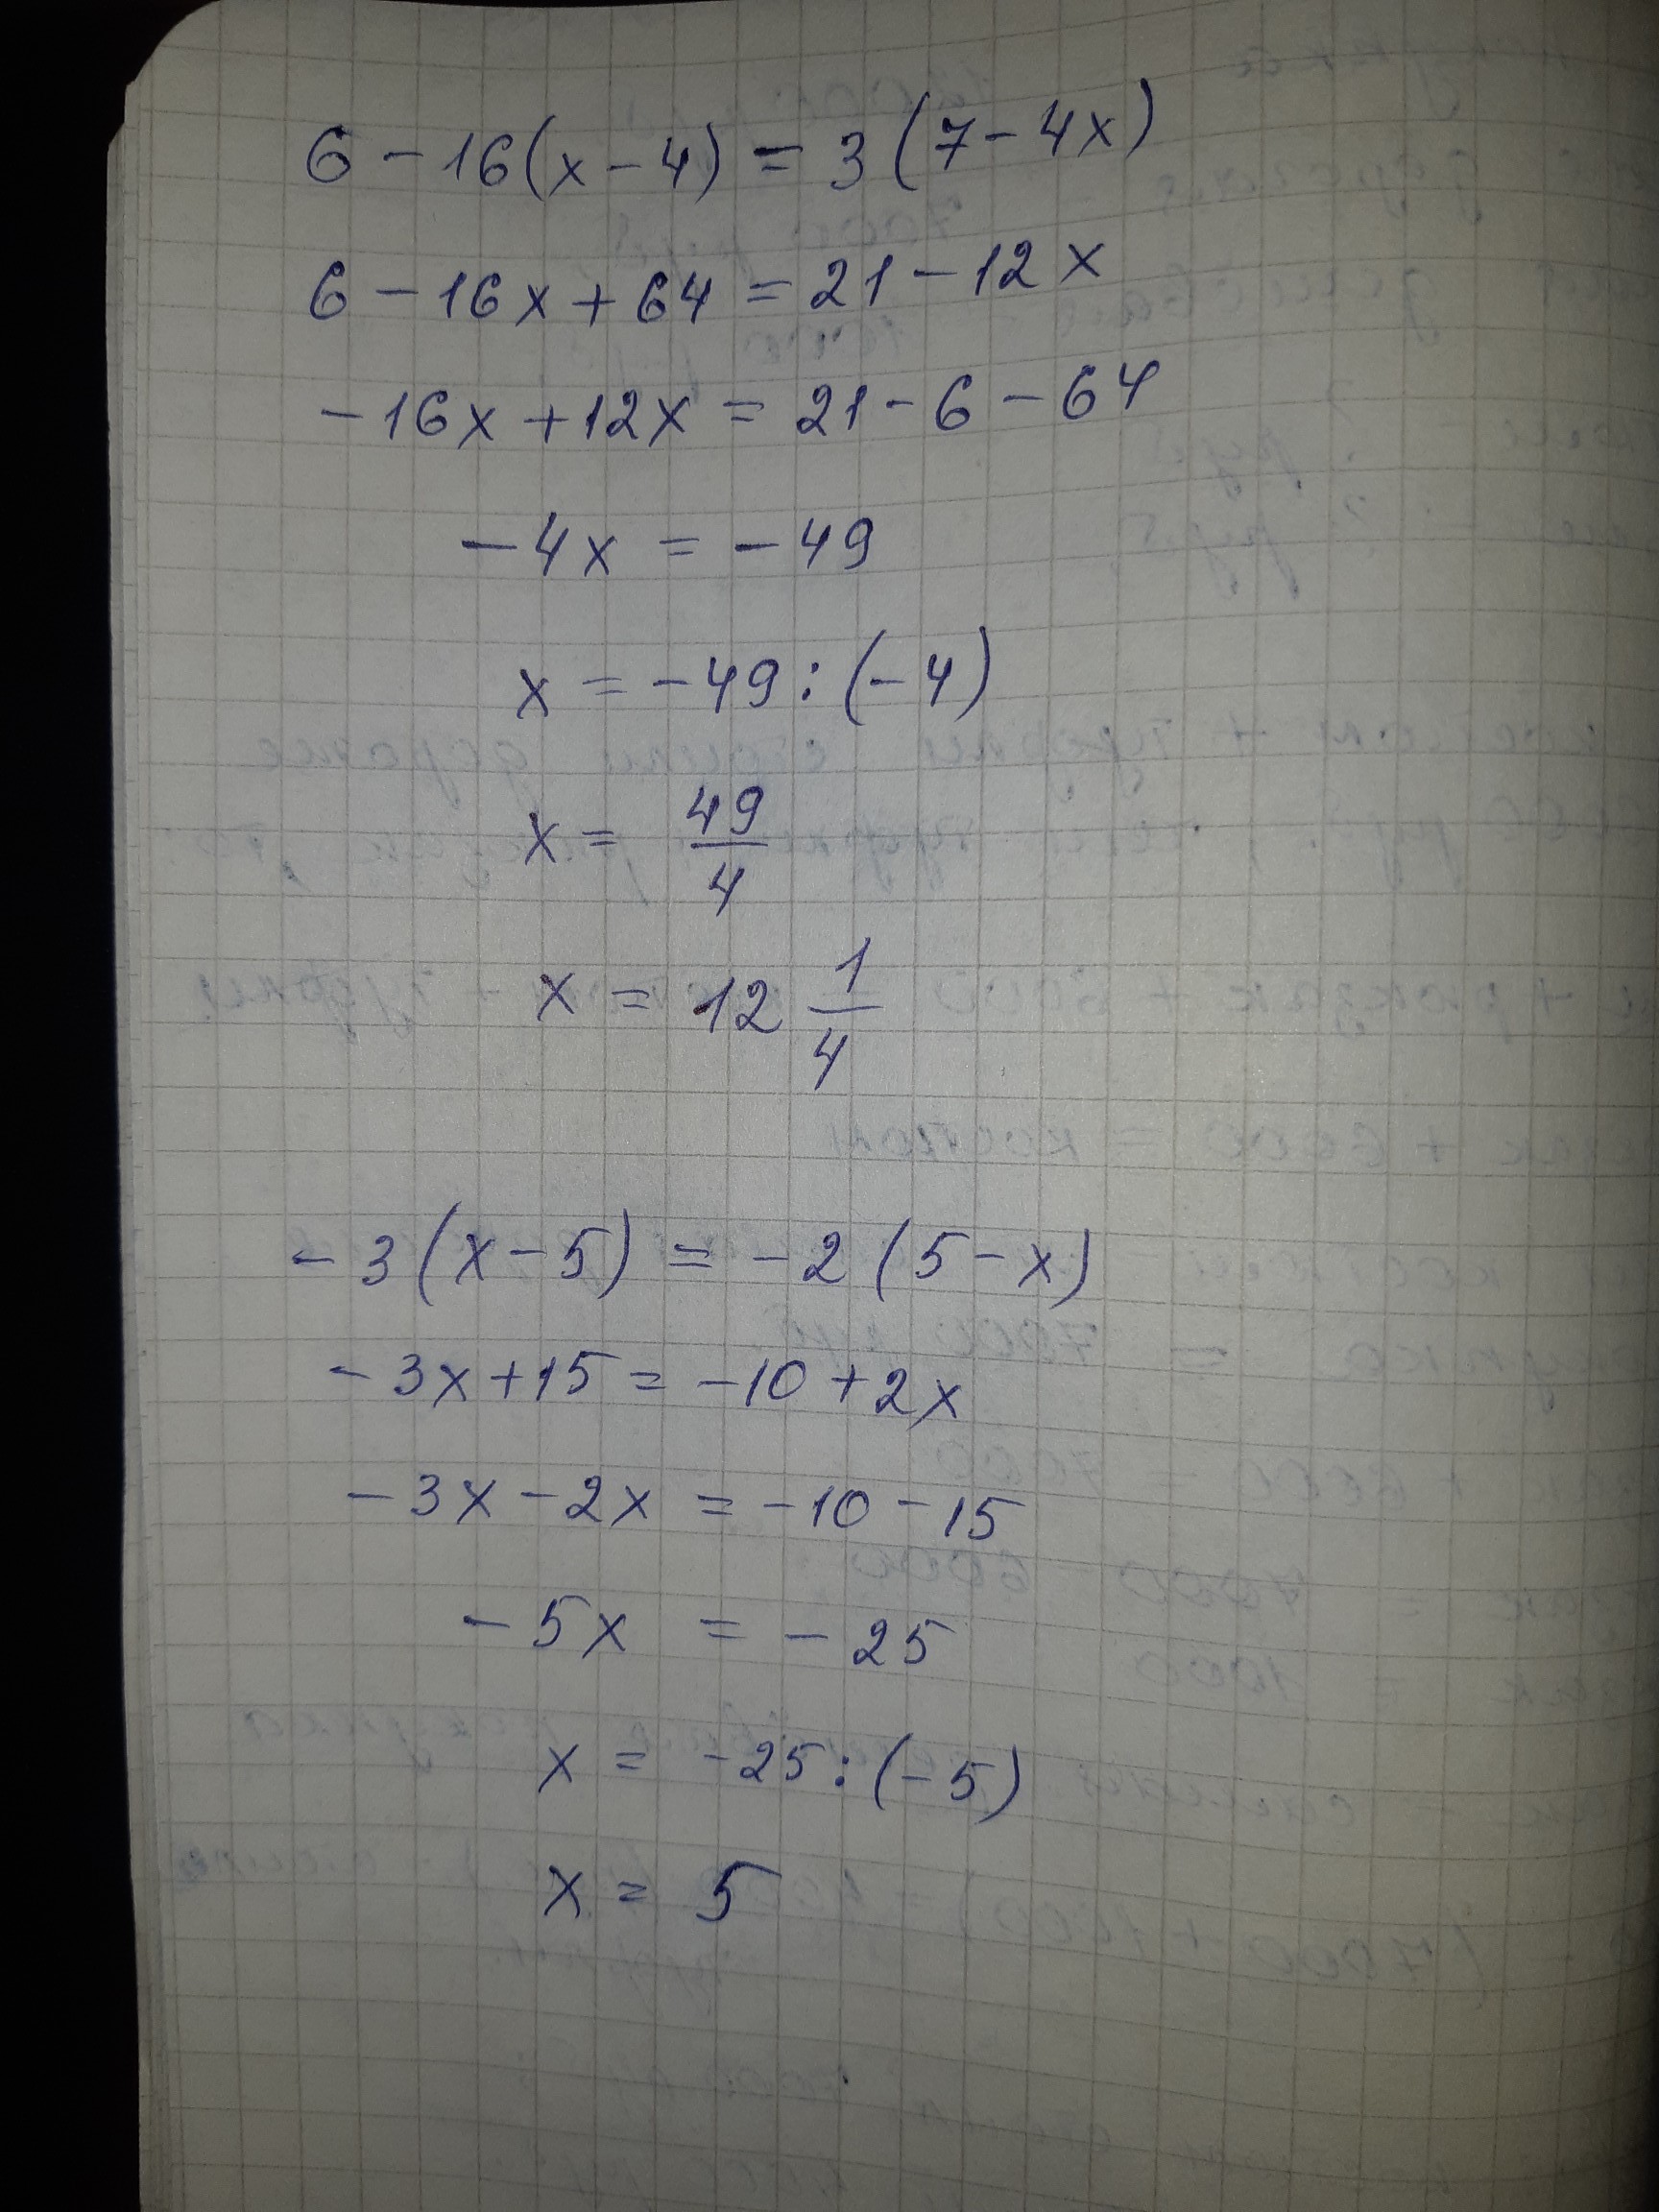 6 - 16(x - 4) = 3(7 - 4x)
6 - 16x + 64 = 21 - 12x
-16x + 12x = 21 - 6 - 64
-4x = -49
x = -49 : (-4)
x = 49/4
x = 12 1/4
-3(x - 5) = -2(5 - x)
-3x + 15 = -10 + 2x
-3x - 2x = -10 - 15
-5x = -25
x = -25 : (-5)
x = 5